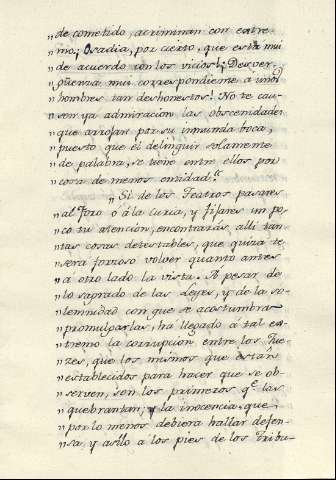 „de cometido, acriminan con estre
„mo; Osadia, por cierto, que està mui
„de acuerdo con los vicios! ¡Desver-
„güenza mui correspondiente à unos
„hombres tan deshonestos! No te cau-
„sen ya admiración las obscenidades
„que arrojan por su inmunda boca,
„puesto que el delinquir solamente
„de palabra, se tiene entre ellos por
„cosa de menos entidad."
„Si de los Teatros pasares
„al Foro o á la curia, y fijares un po-
„co tu atención, encontrarás allí tan-
„tas cosas detestables, que quizá te
„será forzoso volver quanto antes
„á otro lado la vista. A pesar de
„lo sagrado de las Leyes, y de la so-
„lemnidad con que se acostumbra
„promulgarlas, há llegado á tal es-
„tremo la corrupcion entre los Jue-
„zes, que los mismos que están
„establecidos para hacer que se ob-
„serven, son los primeros q.e las
„quebrantan; y la inocencia que
„por lo menos debiera hallar defen-
„sa, y asilo a los pies de los Tribu-